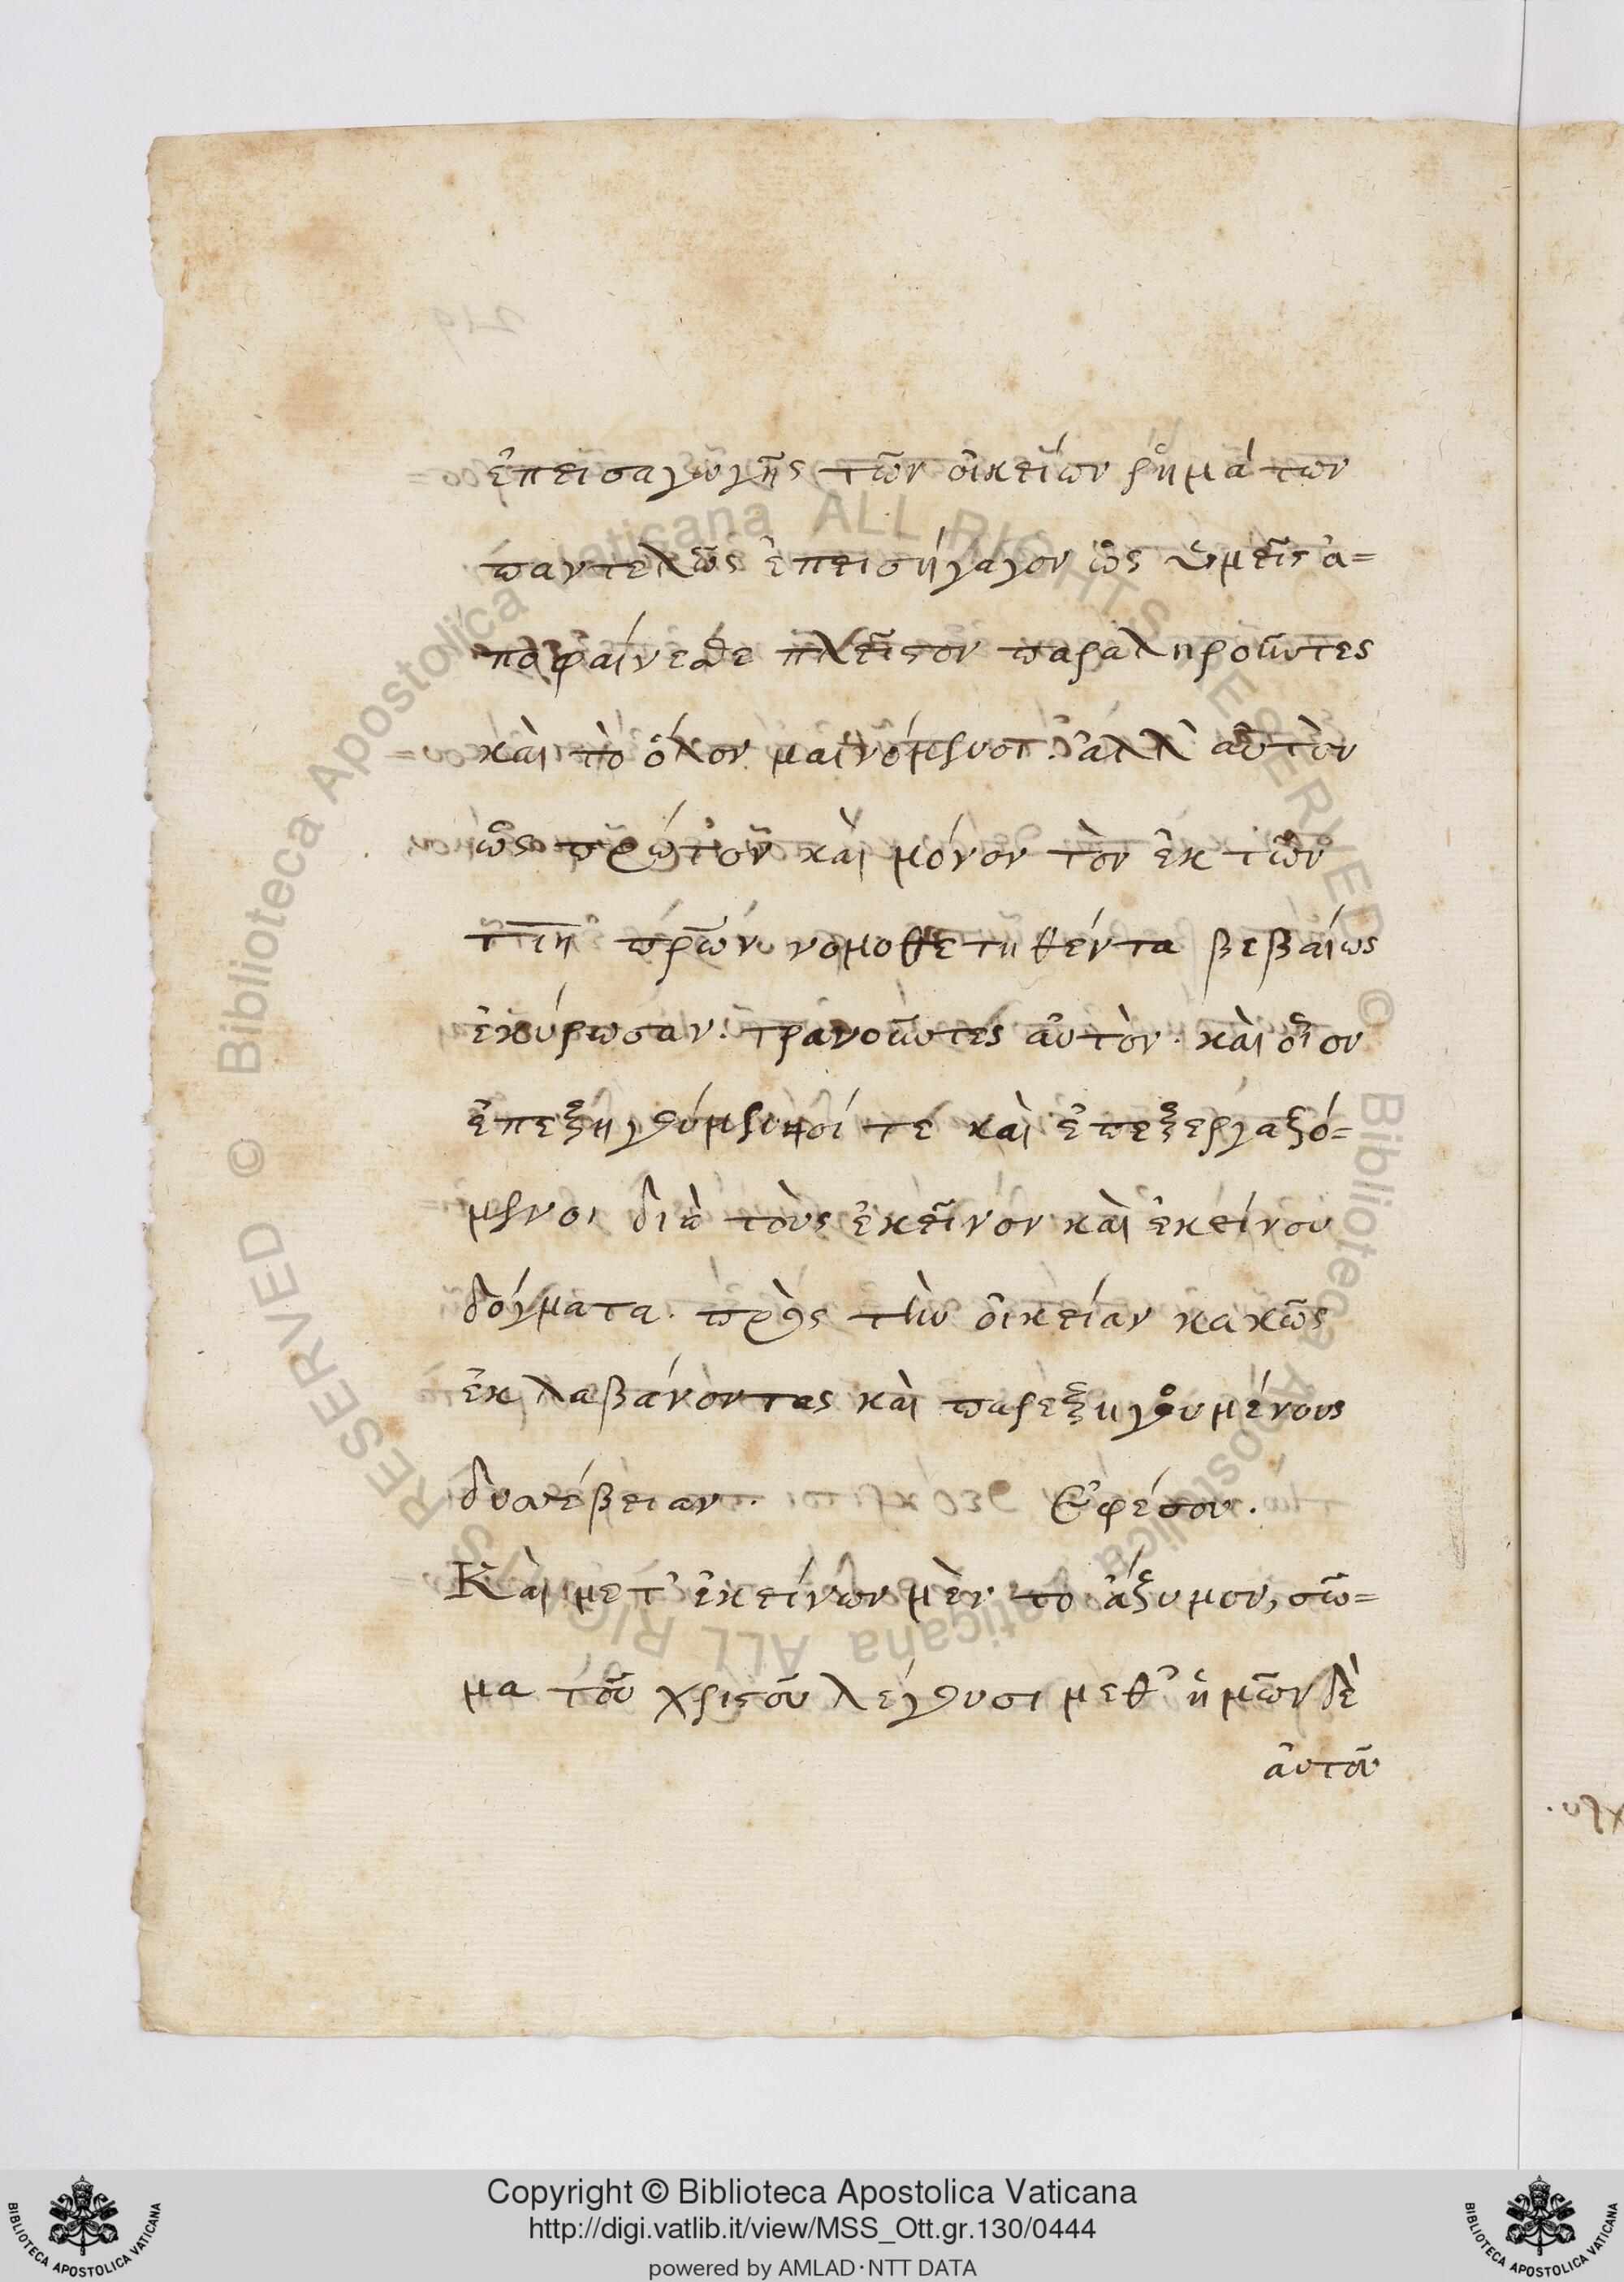 ἐπεισαγωγῆς τῶν οἰκείων ῥημάτων
παντελῶς ἐπεισήγαγον ὡς ὑμεῖς ἀ=
ποφαίνεσθε πλεῖστον παραληροῦντες
καὶ τὸ ὅλον μαινόμενοι. ἀλλ' αὐτὸν
ὡς πρῶτον καὶ μόνον τὸν ἐκ τῶν
τιη πρων νομοθετηθέντα βεβαίως
ἐκύρωσαν. τρανοῦντες αὐτὸν. καὶ οἷον
ἐπεξηγούμενοί τε καὶ ἐπεξεργαζό=
μενοι διὰ τοὺς ἐκεῖνον καὶ ἐκείνου
δόγματα. πρὸς τὴν οἰκείαν κακῶς
ἐκλαβάνοντας καὶ παρεξηγουμένους
δυσσέβειαν. Ἐφέσου.
Καὶ μετ' ἐκείνων μὲν το ἄζυμον, σῶ=
μα τοῦ χριστοῦ λέγουσι μεθ' ἡμῶν δὲ
αὐτοῦ
Copyright © Biblioteca Apostolica Vaticana
http://digi.vatlib.it/view/MSS_Ott.gr.130/0444
powered by AMLAD·NTT DATA